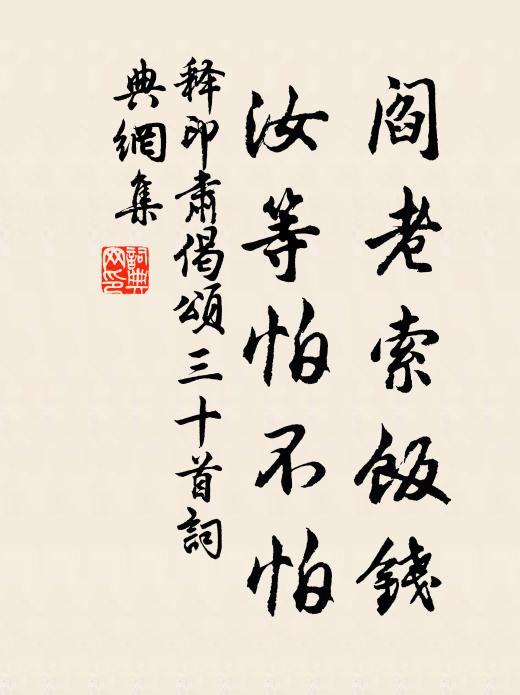 閻老索飯錢
汝等怕不怕
释印肅偈頌三十首詞
典網集
詞典
网印